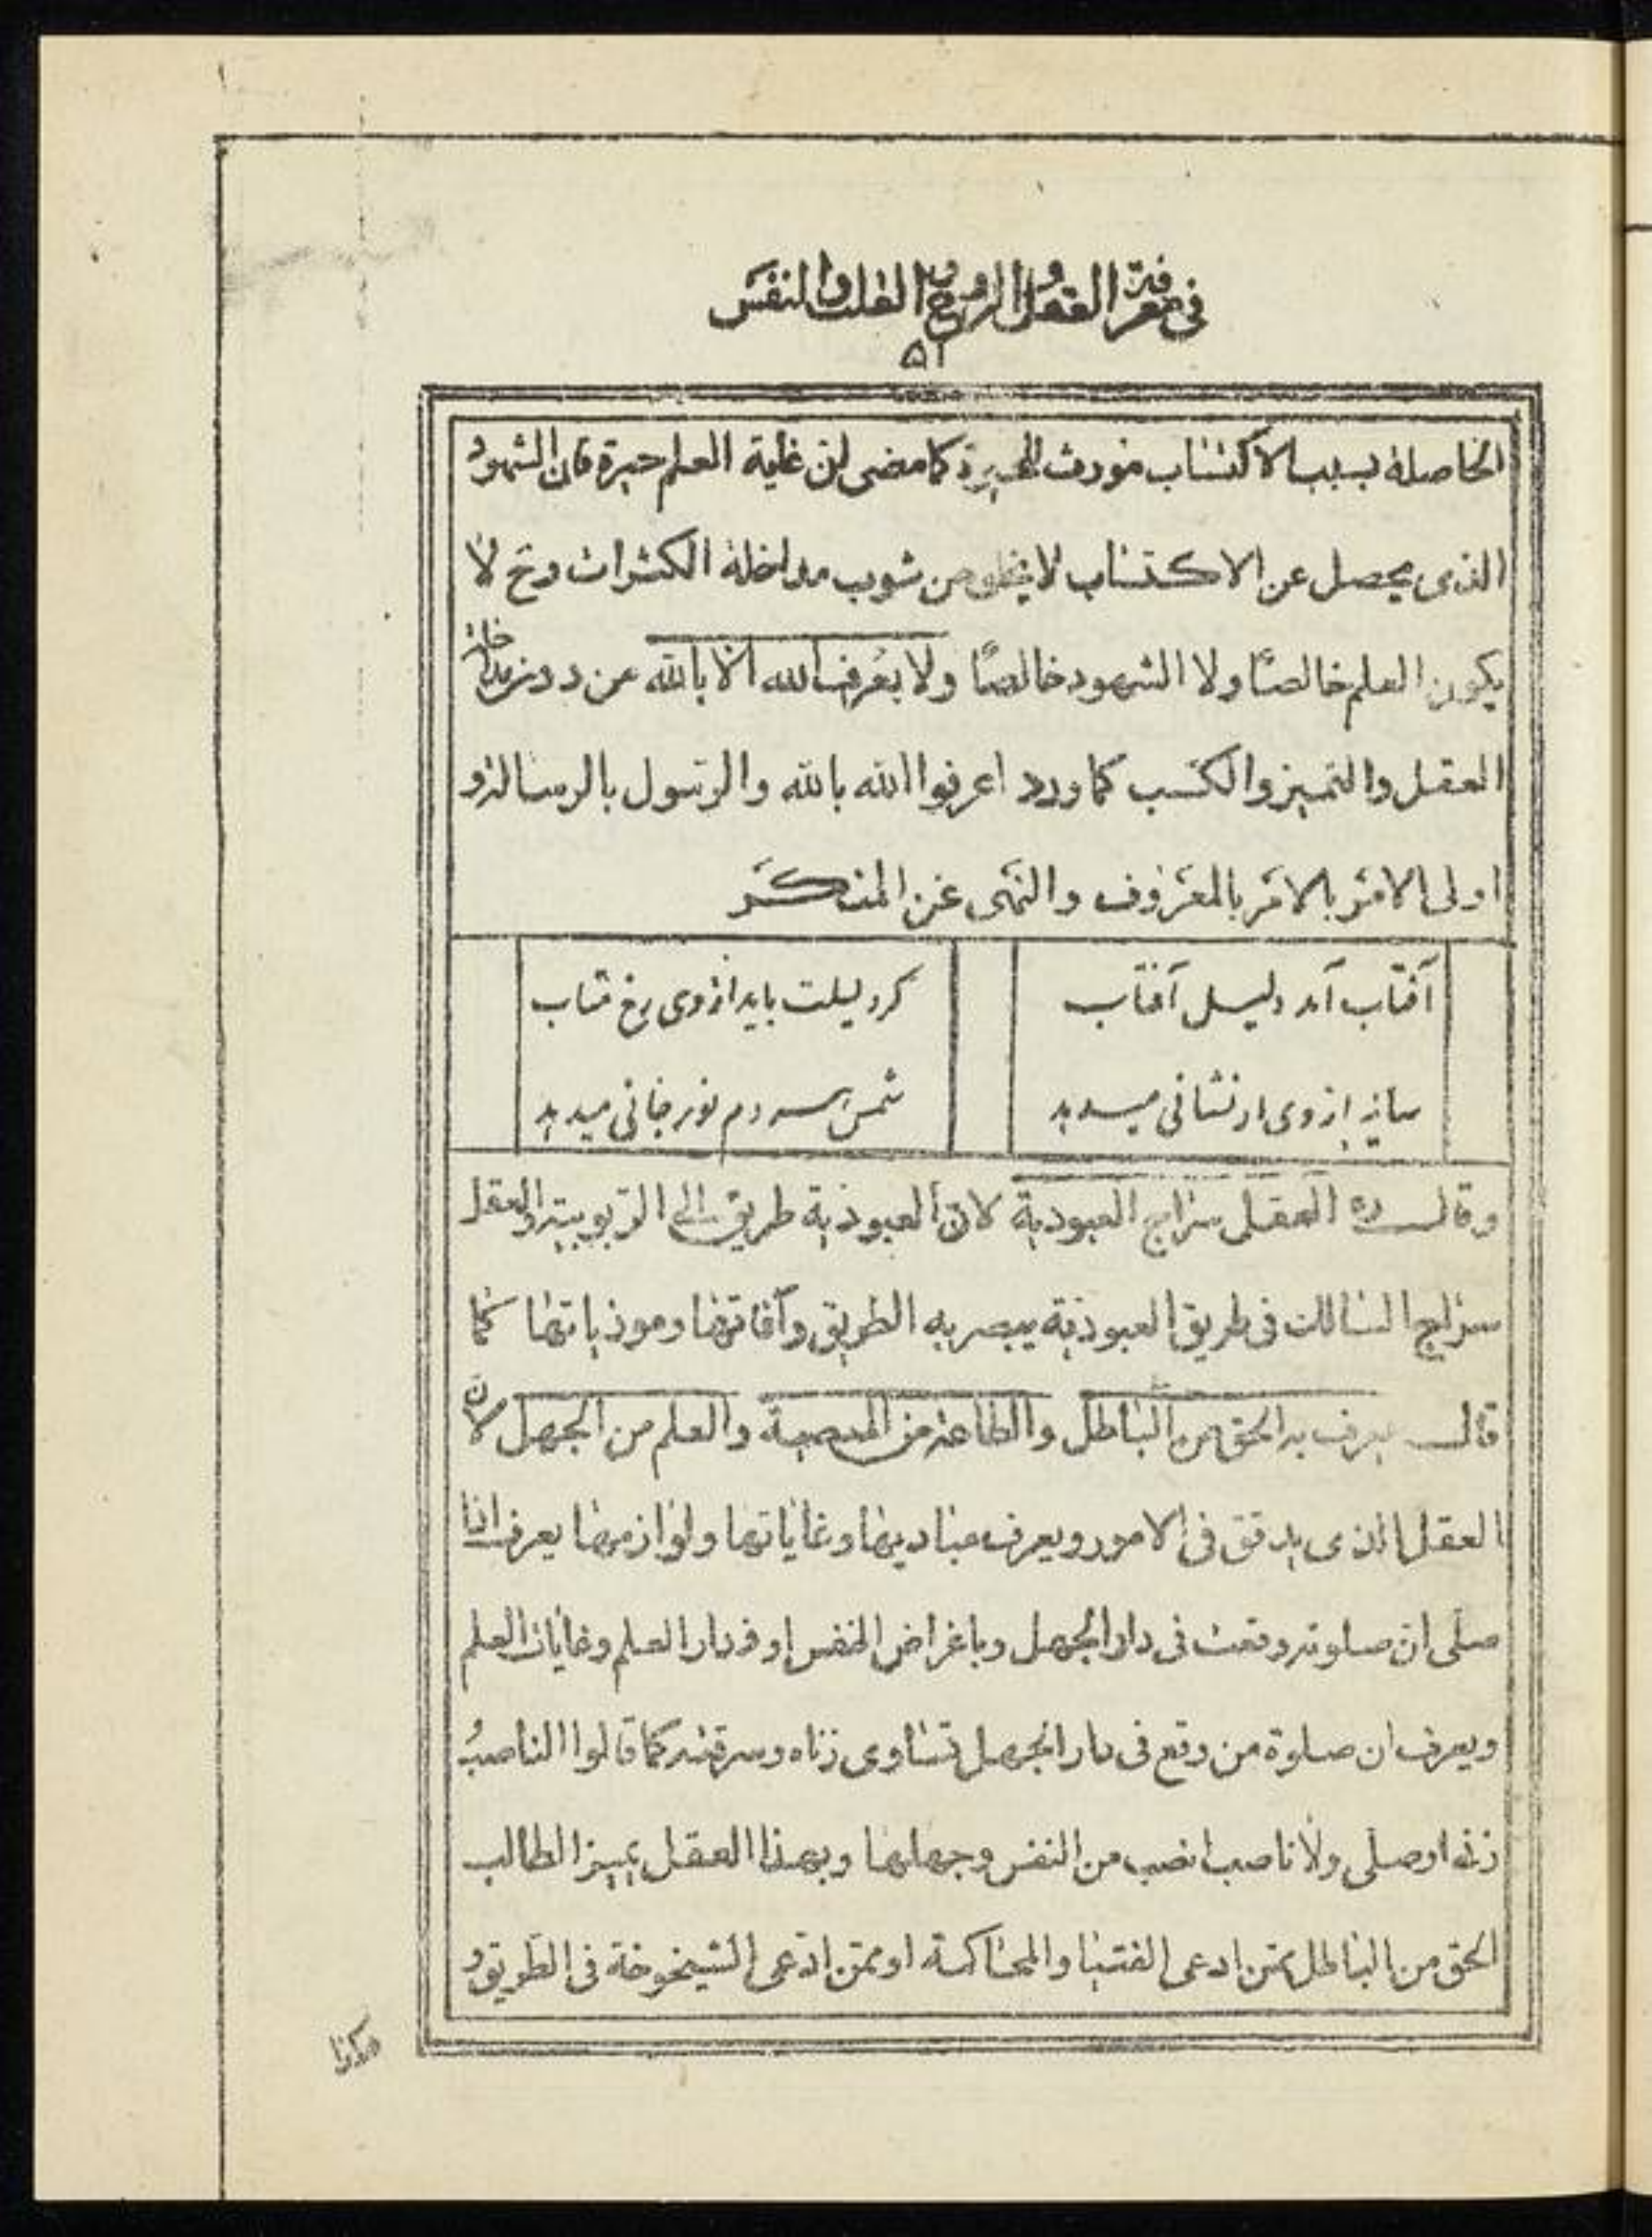 فی معرفة العقل والروح والقلب والنفس
۵۱
الحاصلة بسبب الاکتساب مورث للحیرة کما مضی ان غایة العلم حیرة فان الشهود
الذی یحصل عن الاکتساب لا یخلو من شوب مداخلة الکثرات وح لا
یکون العلم خالصًا ولا الشهود خالصًا ولا یُعرف الله الا بالله من دون مداخلة
العقل والتمیز والکسب کما ورد اعرفوا الله بالله والرسول بالرسالة و
اولی الامر بالامر بالمعروف والنهی عن المنکر
آفتاب آمد دلیل آفتاب
کر دلیلت باید از وی رخ متاب
سایه از وی ار نشانی میدهد
شمس هر دم نور جانی میدهد
وقال ره العقل سراج العبودیة لان العبودیة طریق الی الربوبیة والعقل
سراج السالک فی طریق العبودیة یبصر به الطریق وآفاتها وموذیاتها کما
قال یعرف به الحق من الباطل والطاعة من المعصیة والعلم من الجهل لان
العقل الذی یدقق فی الامور ویعرف مبادیها وغایاتها ولوازمها یعرف اذا
صلی ان صلوته وقعت فی دار الجهل وباغراض النفس او فی دار العلم وغایات العلم
ویعرف ان صلوة من وقع فی دار الجهل تساوی زناه وسرقته کما قالوا الناصبُ
زنی او صلی ولا ناصب انصب من النفس وجهلها وبهذا العقل یمیز الطالب
الحق من الباطل ممن ادعی الفتیا والمحاکمة او ممن ادّعی الشیخوخة فی الطریق و
هکذا